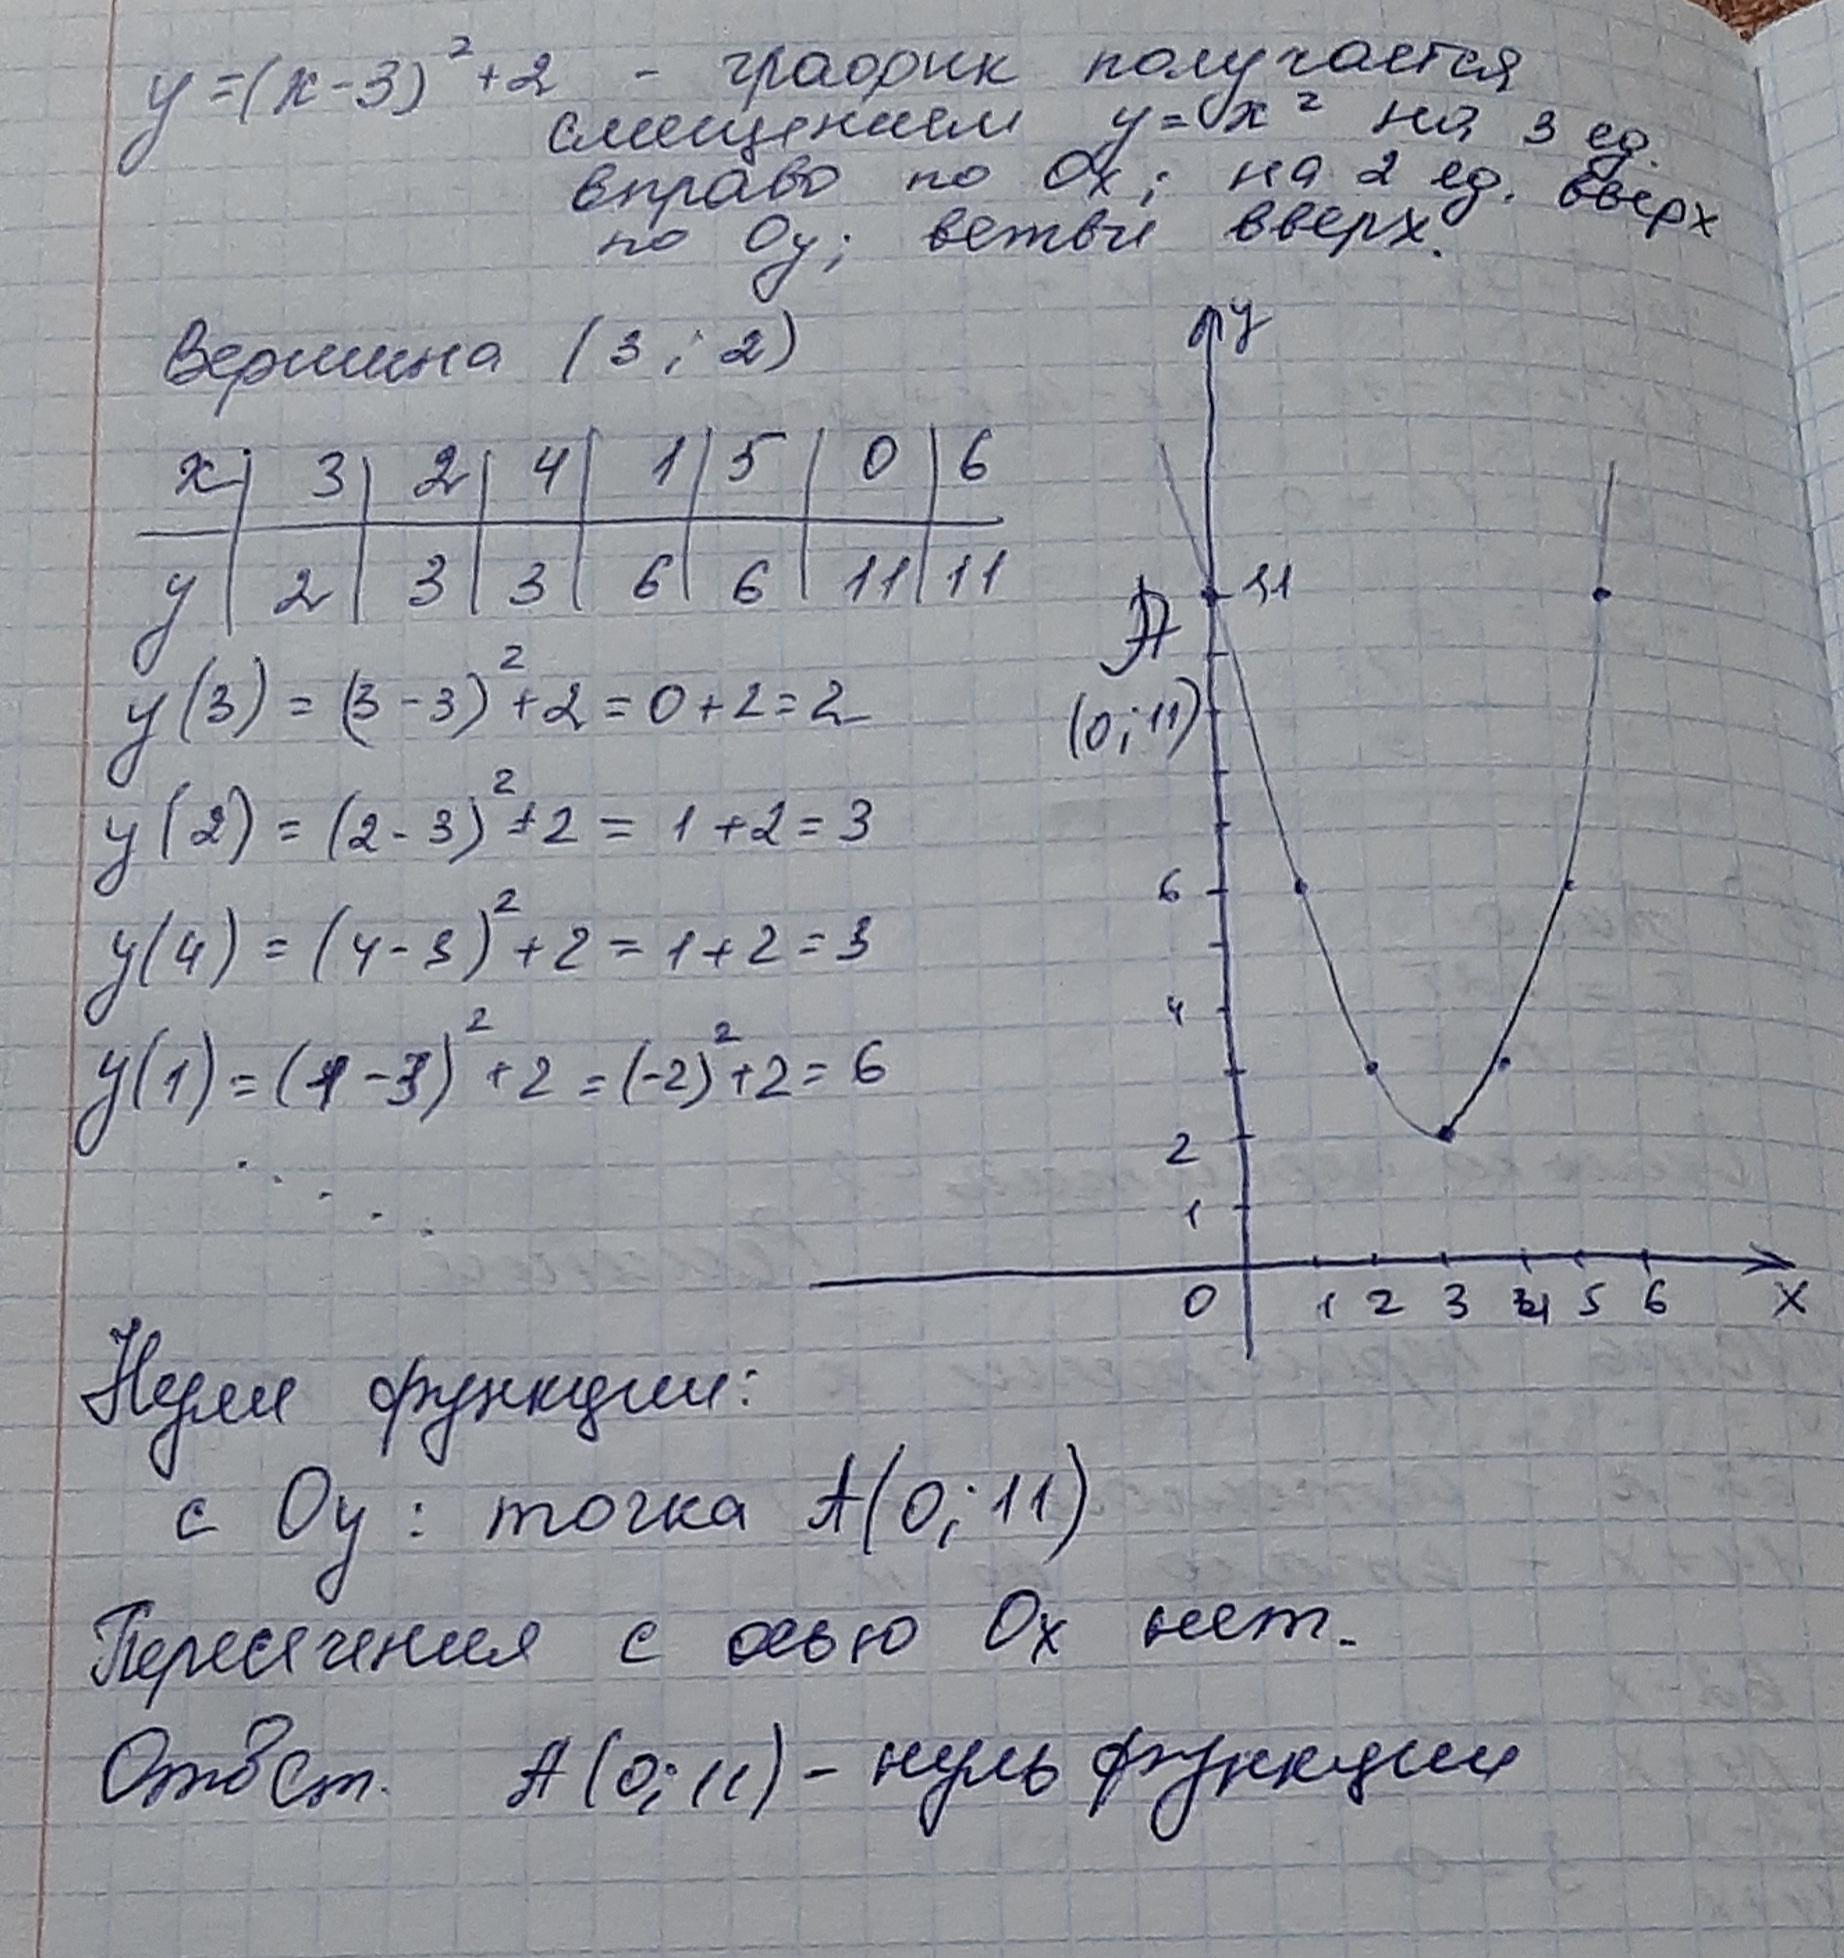 y = (x-3)² + 2 - график получается
смещением y = x² на 3 ед.
вправо по Ox; на 2 ед. вверх
по Oy; ветви вверх.
Вершина (3; 2)
x | 3 | 2 | 4 | 1 | 5 | 0 | 6
y | 2 | 3 | 3 | 6 | 6 | 11 | 11
y(3) = (3-3)² + 2 = 0+2 = 2
y(2) = (2-3)² + 2 = 1+2 = 3
y(4) = (4-3)² + 2 = 1+2 = 3
y(1) = (1-3)² + 2 = (-2)² + 2 = 6
. . . . .
y
11
A
(0; 11)
6
4
2
1
0 1 2 3 4 5 6 x
Нули функции:
с Oy: точка A(0; 11)
Пересечения с осью Ox нет.
Ответ. A(0; 11) - нуль функции